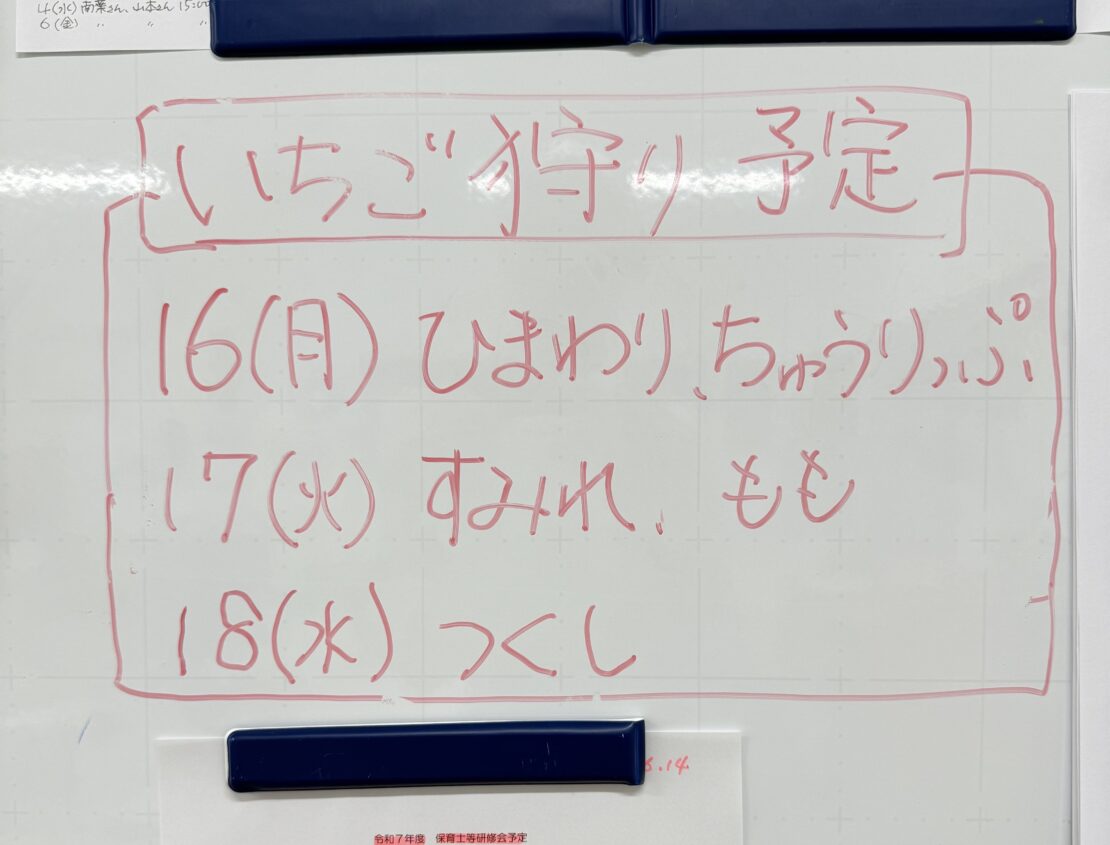 4(水) 南葉さん、山本さん 15:00
6(金) 〃 〃 〃
いちご狩り 予定
16(月) ひまわり、ちゅうりっぷ
17(火) すみれ、もも
18(水) つくし
.14
令和7年度 保育士等研修会予定